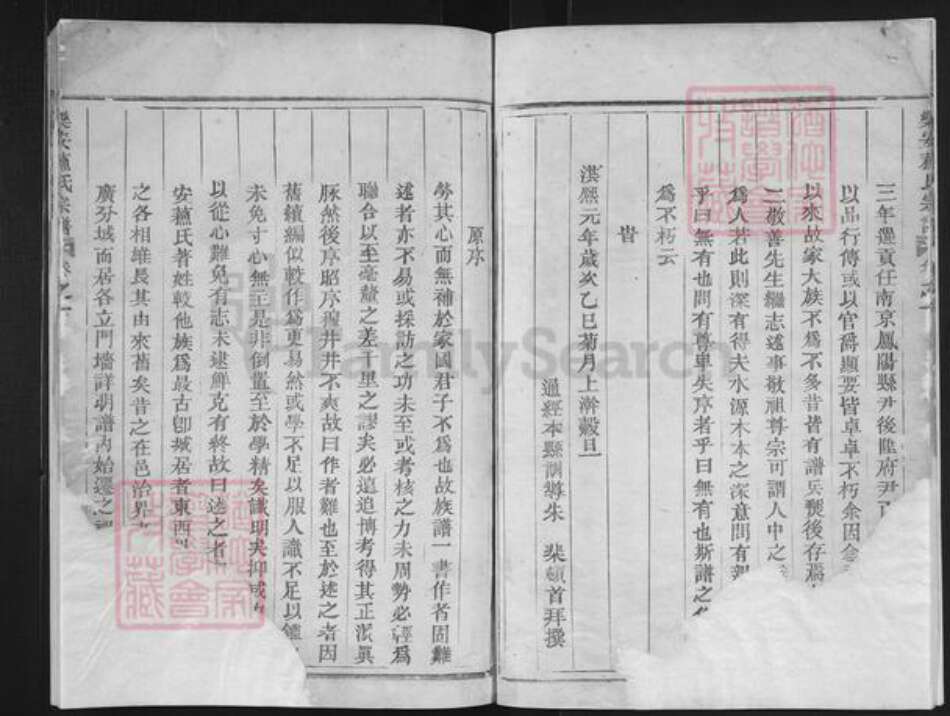 三年選貢任南京鳳陽縣尹後陞府尹
以品行傳或以官爵顯要皆卓卓不朽余因
以來故家大族不爲不多昔皆有譜兵燹後存焉
二敬善先生繼志述事敬祖尊宗可謂人中之
爲人若此則深有得夫水源木本之深意問有
乎曰無有也問有尊卑失序者乎曰無有也斯譜之
爲不朽云
旹
洪熙元年歲次乙巳菊月上澣穀旦
通經本縣訓導朱 棐頓首拜撰
原序
勞其心而無補於家國君子不爲也故族譜一書作者固難
述者亦不易或採訪之功未至或考核之力未周勢必輕爲
聯合以至毫釐之差千里之謬矣必遠追博考得其正派眞
脉然後序昭序穆井井不爽故曰作者難也至於述之者因
舊續編似較作爲更易然或學不足以服人識不足以
未免寸心無主是非倒置至於學精矣識明矣抑或
以從心難免有志未逮鮮克有終故曰述之者
安蘓氏著姓較他族爲最古卽城居者東西
之各相維長其由來舊矣昔之在邑治
廣分域而居各立門墻詳明譜內始遷之
樂安蘓氏宗譜
FamilySearch